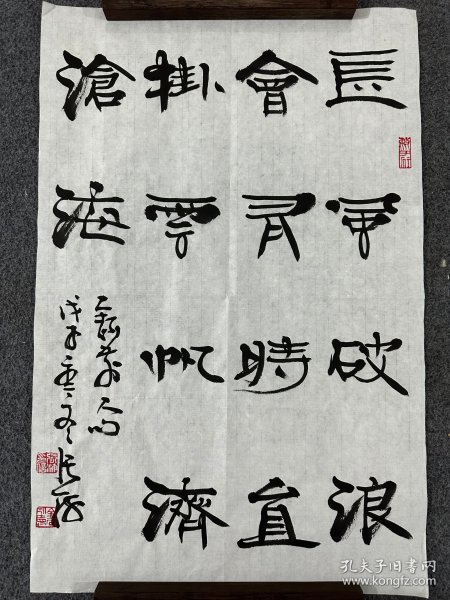 長風破浪
會有時直
掛雲帆濟
滄海
戊子
孔夫子旧书网
www.kongfz.com